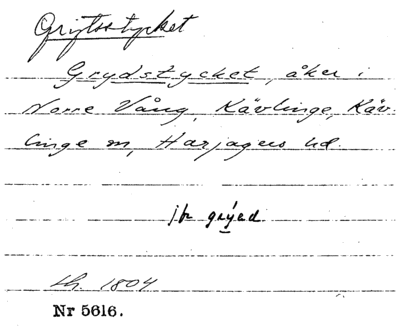 Griftsstycket
Grydstycket, åker i
Norre Vång, Kävlinge, Käv-
linge sn, Harjagers hd.
jfr grýed
Lh. 1804
Nr 5616.